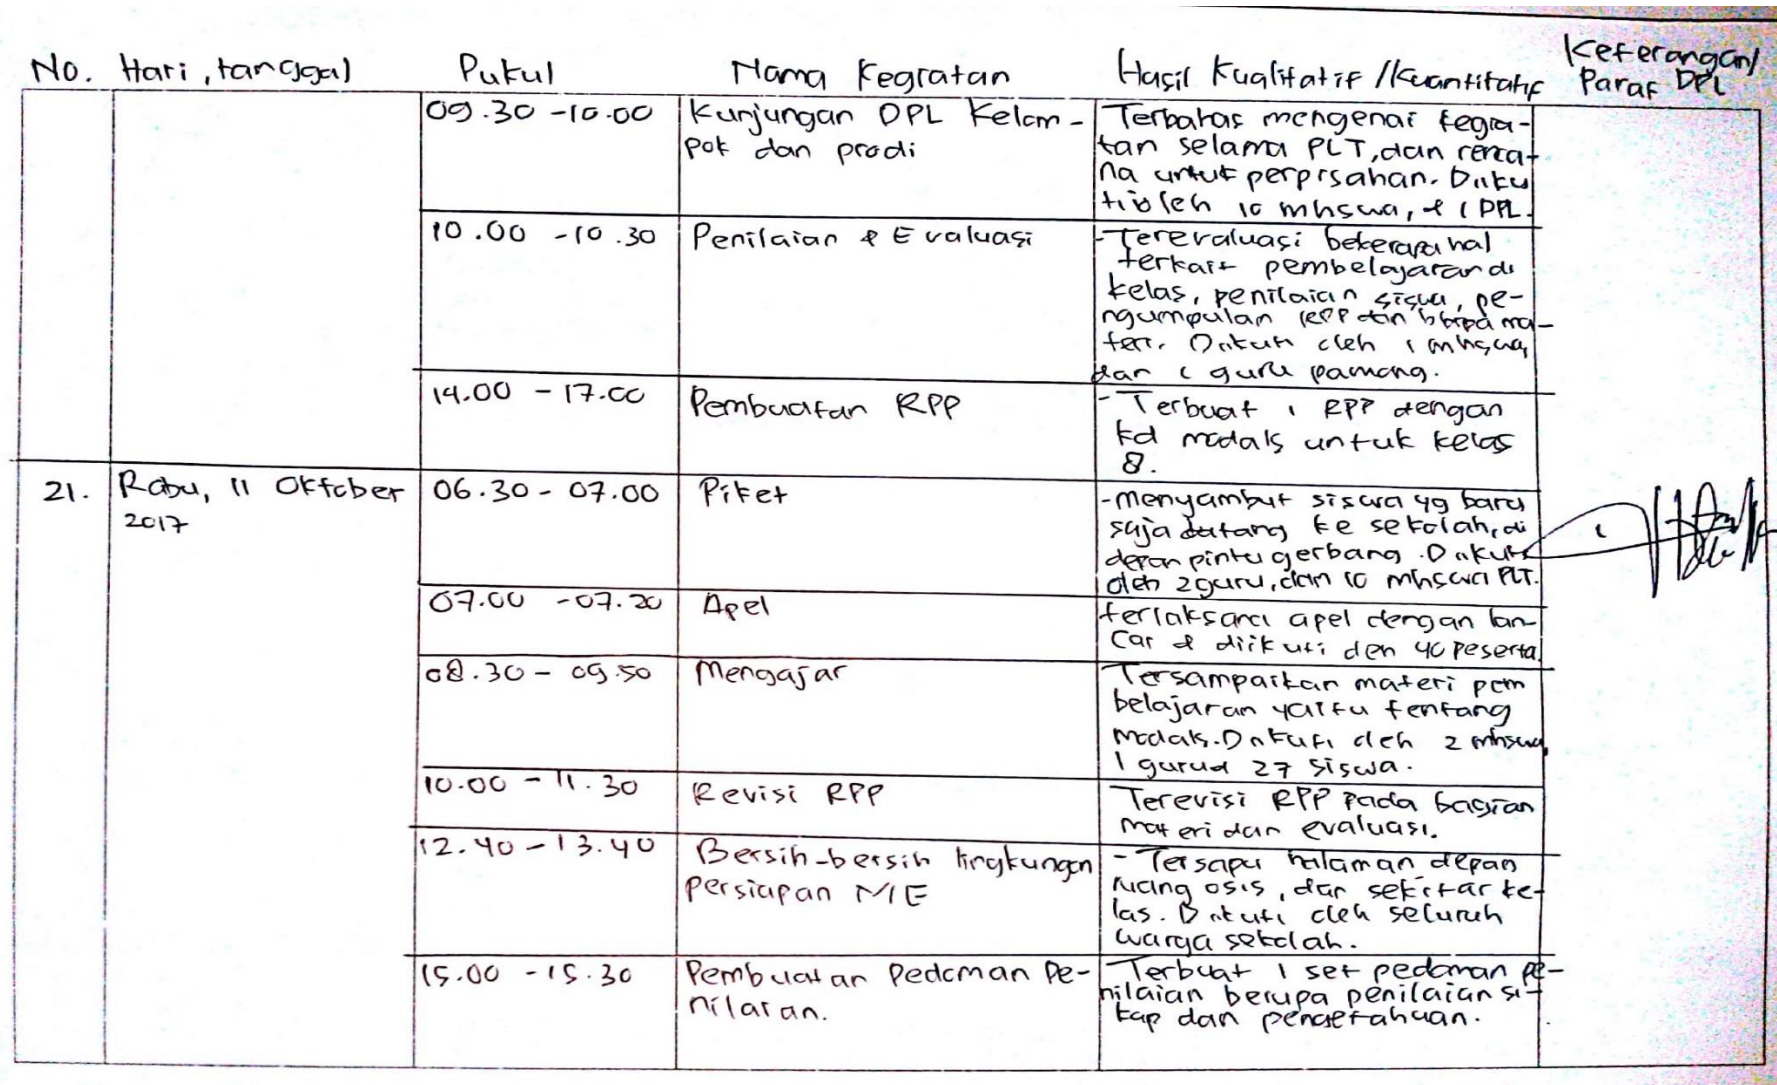 No. Hari, tanggal Pukul Nama Kegiatan Hasil Kualitatif / Kuantitatif Keterangan/
Paraf DPL
09.30 - 10.00 Kunjungan DPL Kelom-
pok dan prodi
Terbahas mengenai kegia-
tan selama PLT, dan renca-
na untuk perpisahan. Diiku
ti oleh 10 mhswa, & 1 DPL.
10.00 - 10.30 Penilaian & Evaluasi
- Terevaluasi beberapa hal
terkait pembelajaran di
kelas, penilaian siswa, pe-
ngumpulan RPP dan ma-
teri. Diikuti oleh 1 mhswa,
dan 1 guru pamong.
14.00 - 17.00 Pembuatan RPP
- Terbuat 1 RPP dengan
kd modals untuk kelas
8.
21. Rabu, 11 Oktober
2017
06.30 - 07.00 Piket
- menyambut siswa yg baru
saja datang ke sekolah, di
depan pintu gerbang. Diikuti
oleh 2 guru, dan 10 mhswa PLT.
07.00 - 07.20 Apel
terlaksana apel dengan lan-
car & diikuti den 40 peserta.
08.30 - 09.50 Mengajar
Tersampaikan materi pem
belajaran yaitu tentang
modals. Diikuti oleh 2 mhswa,
1 guru & 27 siswa.
10.00 - 11.30 Revisi RPP
Terevisi RPP pada bagian
materi dan evaluasi.
12.40 - 13.40 Bersih-bersih lingkungan
persiapan ME
- Tersapu halaman depan
ruang osis, dan sekitar ke-
las. Diikuti oleh seluruh
warga sekolah.
15.00 - 15.30 Pembuatan Pedoman Pe-
nilaian.
Terbuat 1 set pedoman pe-
nilaian berupa penilaian si-
kap dan pengetahuan.